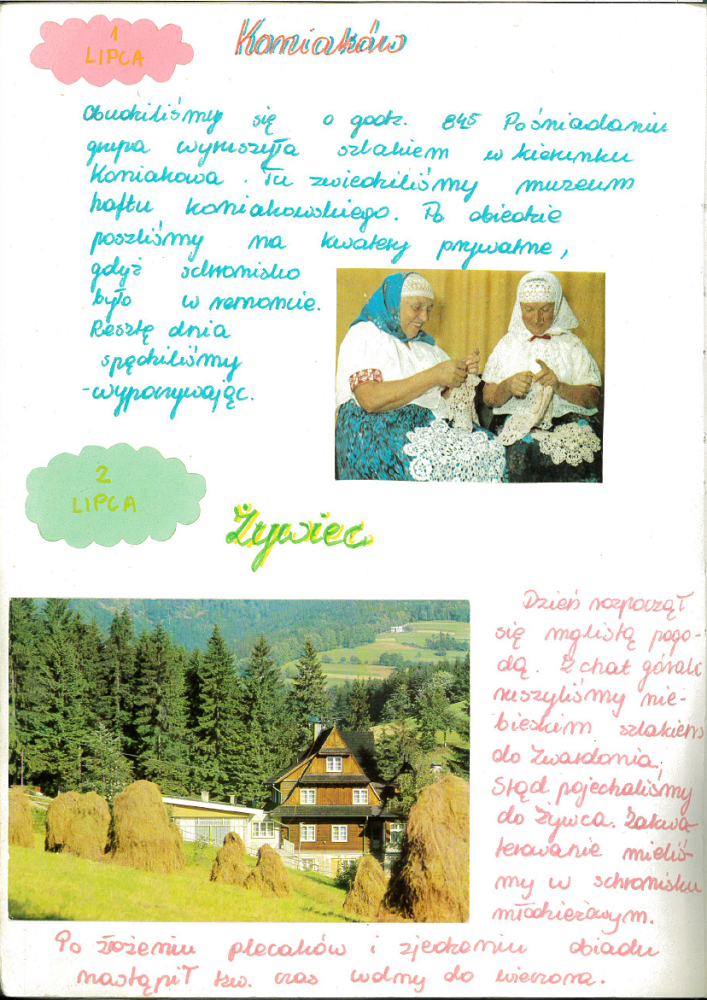 1
LIPCA
Koniaków
Obudziliśmy się o godz. 845 Pośniadaniu
grupa wyruszyła szlakiem w kierunku
Koniakowa. Tu zwiedziliśmy muzeum
haftu koniakowskiego. Po obiedzie
poszliśmy na kwatery prywatne,
gdyż schronisko
było w remoncie.
Resztę dnia
spędziliśmy
-wypoczywając.
2
LIPCA
Żywiec
Dzień rozpoczął
się mglistą pogo-
dą. Z chat górali
ruszyliśmy nie-
bieskim szlakiem
do Zwardonia,
Stąd pojechaliśmy
do Żywca. Zakwa
terowanie mieliś-
my w schronisku
młodzieżowym.
Po złożeniu plecaków i zjedzeniu obiadu
nastąpił tzw. czas wolny do wieczora.